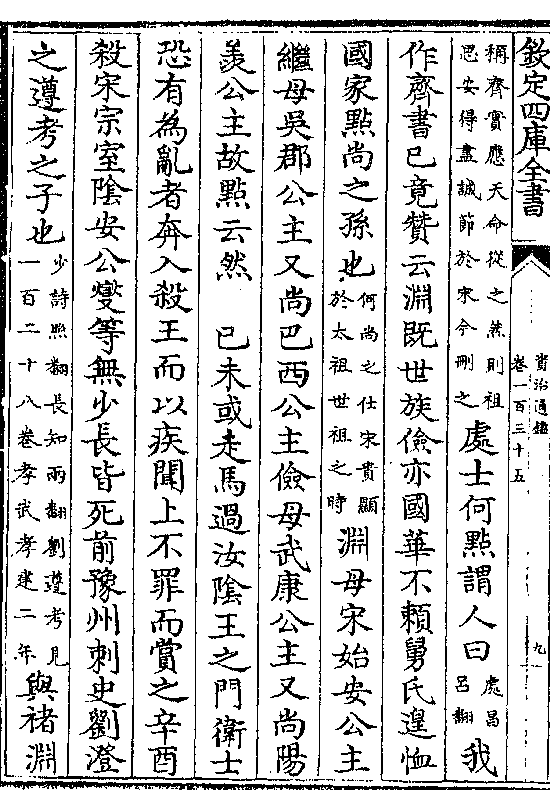 欽定四庫全書
資治通鑑
卷一百三十五
九
稱齊實應天命從之然則祖
思安得盡誠節於宋今刪之
處士何點謂人曰
處昌
呂翻
我
作齊書已竟贊云淵既世族儉亦國華不賴舅氏遑恤
國家點尚之孫也
何尚之仕宋貴顯
於太祖世祖之時
淵母宋始安公主
繼母吳郡公主又尚巴西公主儉母武康公主又尚陽
羨公主故點云然 已未或走馬過汝陰王之門衛士
恐有為亂者奔入殺王而以疾聞上不罪而賞之辛酉
殺宋宗室陰安公燮等無少長皆死前豫州刺史劉澄
之遵考之子也
少詩照翻長知兩翻劉遵考見
一百二十八卷孝武孝建二年
與褚淵